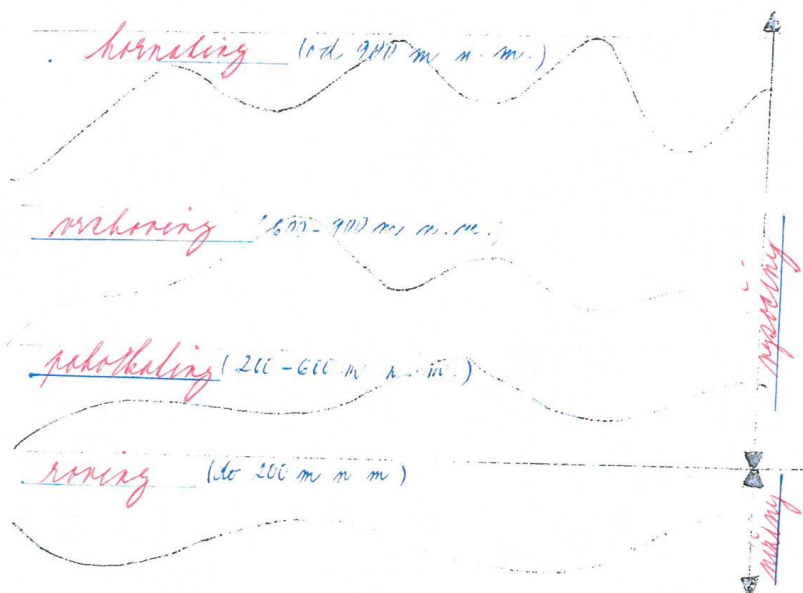 hornatiny (od 900 m n. m.)
vrchoviny (600-900 m n. m.)
pahorkatiny (200-600 m n. m.)
roviny (do 200 m n m)
vysočiny
nížiny